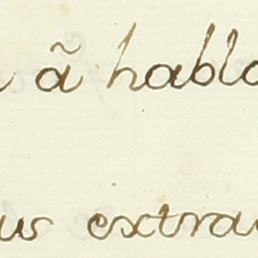 ã habla
us extra